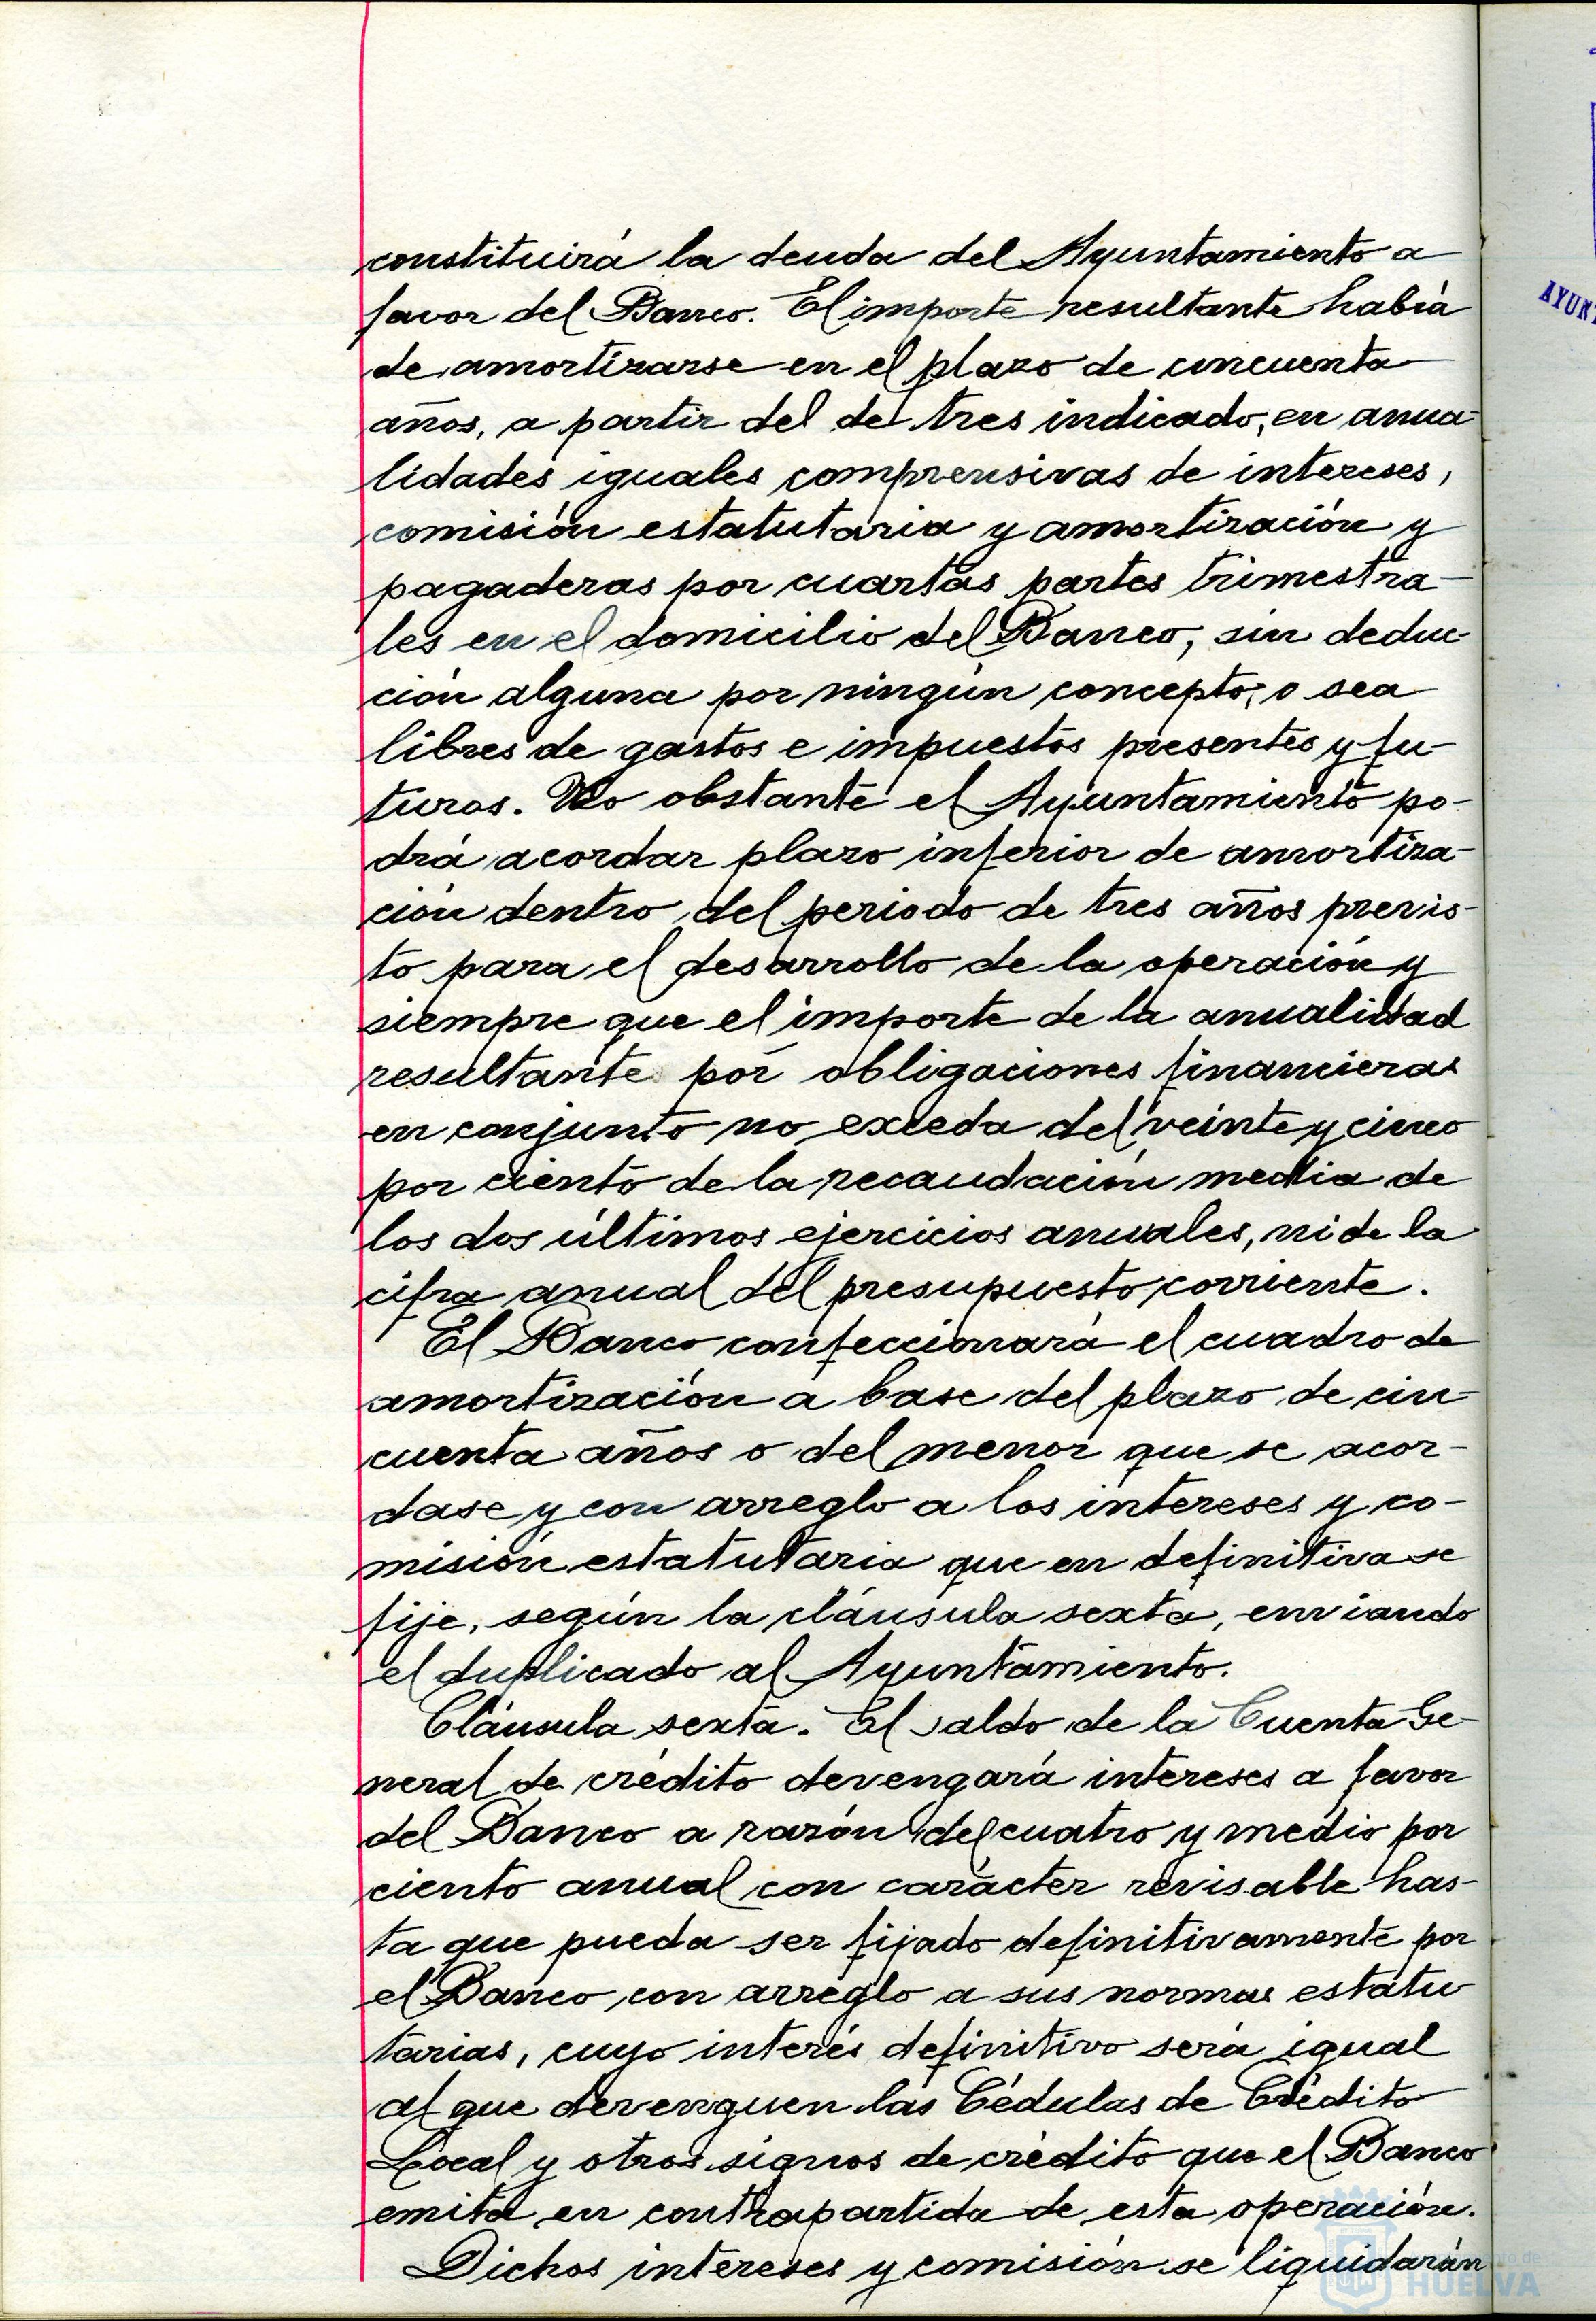 constituirá la deuda del Ayuntamiento a
favor del Banco. El importe resultante habrá
de amortizarse en el plazo de cincuenta
años, a partir del de tres indicado, en anua-
lidades iguales comprensivas de intereses,
comisión estatutaria y amortización y
pagaderas por cuartas partes trimestra-
les en el domicilio del Banco, sin deduc-
ción alguna por ningún concepto, o sea
libres de gastos e impuestos presentes y fu-
turos. No obstante el Ayuntamiento po-
drá acordar plazo inferior de amortiza-
ción dentro del periodo de tres años previs-
to para el desarrollo de la operación y
siempre que el importe de la anualidad
resultante por obligaciones financieras
en conjunto no exceda del veinte y cinco
por ciento de la recaudación media de
los dos últimos ejercicios anuales, ni de la
cifra anual del presupuesto corriente.
El Banco confeccionará el cuadro de
amortización a base del plazo de cin-
cuenta años o del menor que se acor-
dase y con arreglo a los intereses y co-
misión estatutaria que en definitiva se
fije, según la cláusula sexta, enviando
el duplicado al Ayuntamiento.
Cláusula sexta. El saldo de la Cuenta Ge-
neral de crédito devengará intereses a favor
del Banco a razón del cuatro y medio por
ciento anual con carácter revisable has-
ta que pueda ser fijado definitivamente por
el Banco con arreglo a sus normas estatu-
tarias, cuyo interés definitivo será igual
al que devenguen las Cédulas de Crédito
Local y otros signos de crédito que el Banco
emita en contrapartida de esta operación.
Dichos intereses y comisión se liquidarán
AYUN
HUELVA